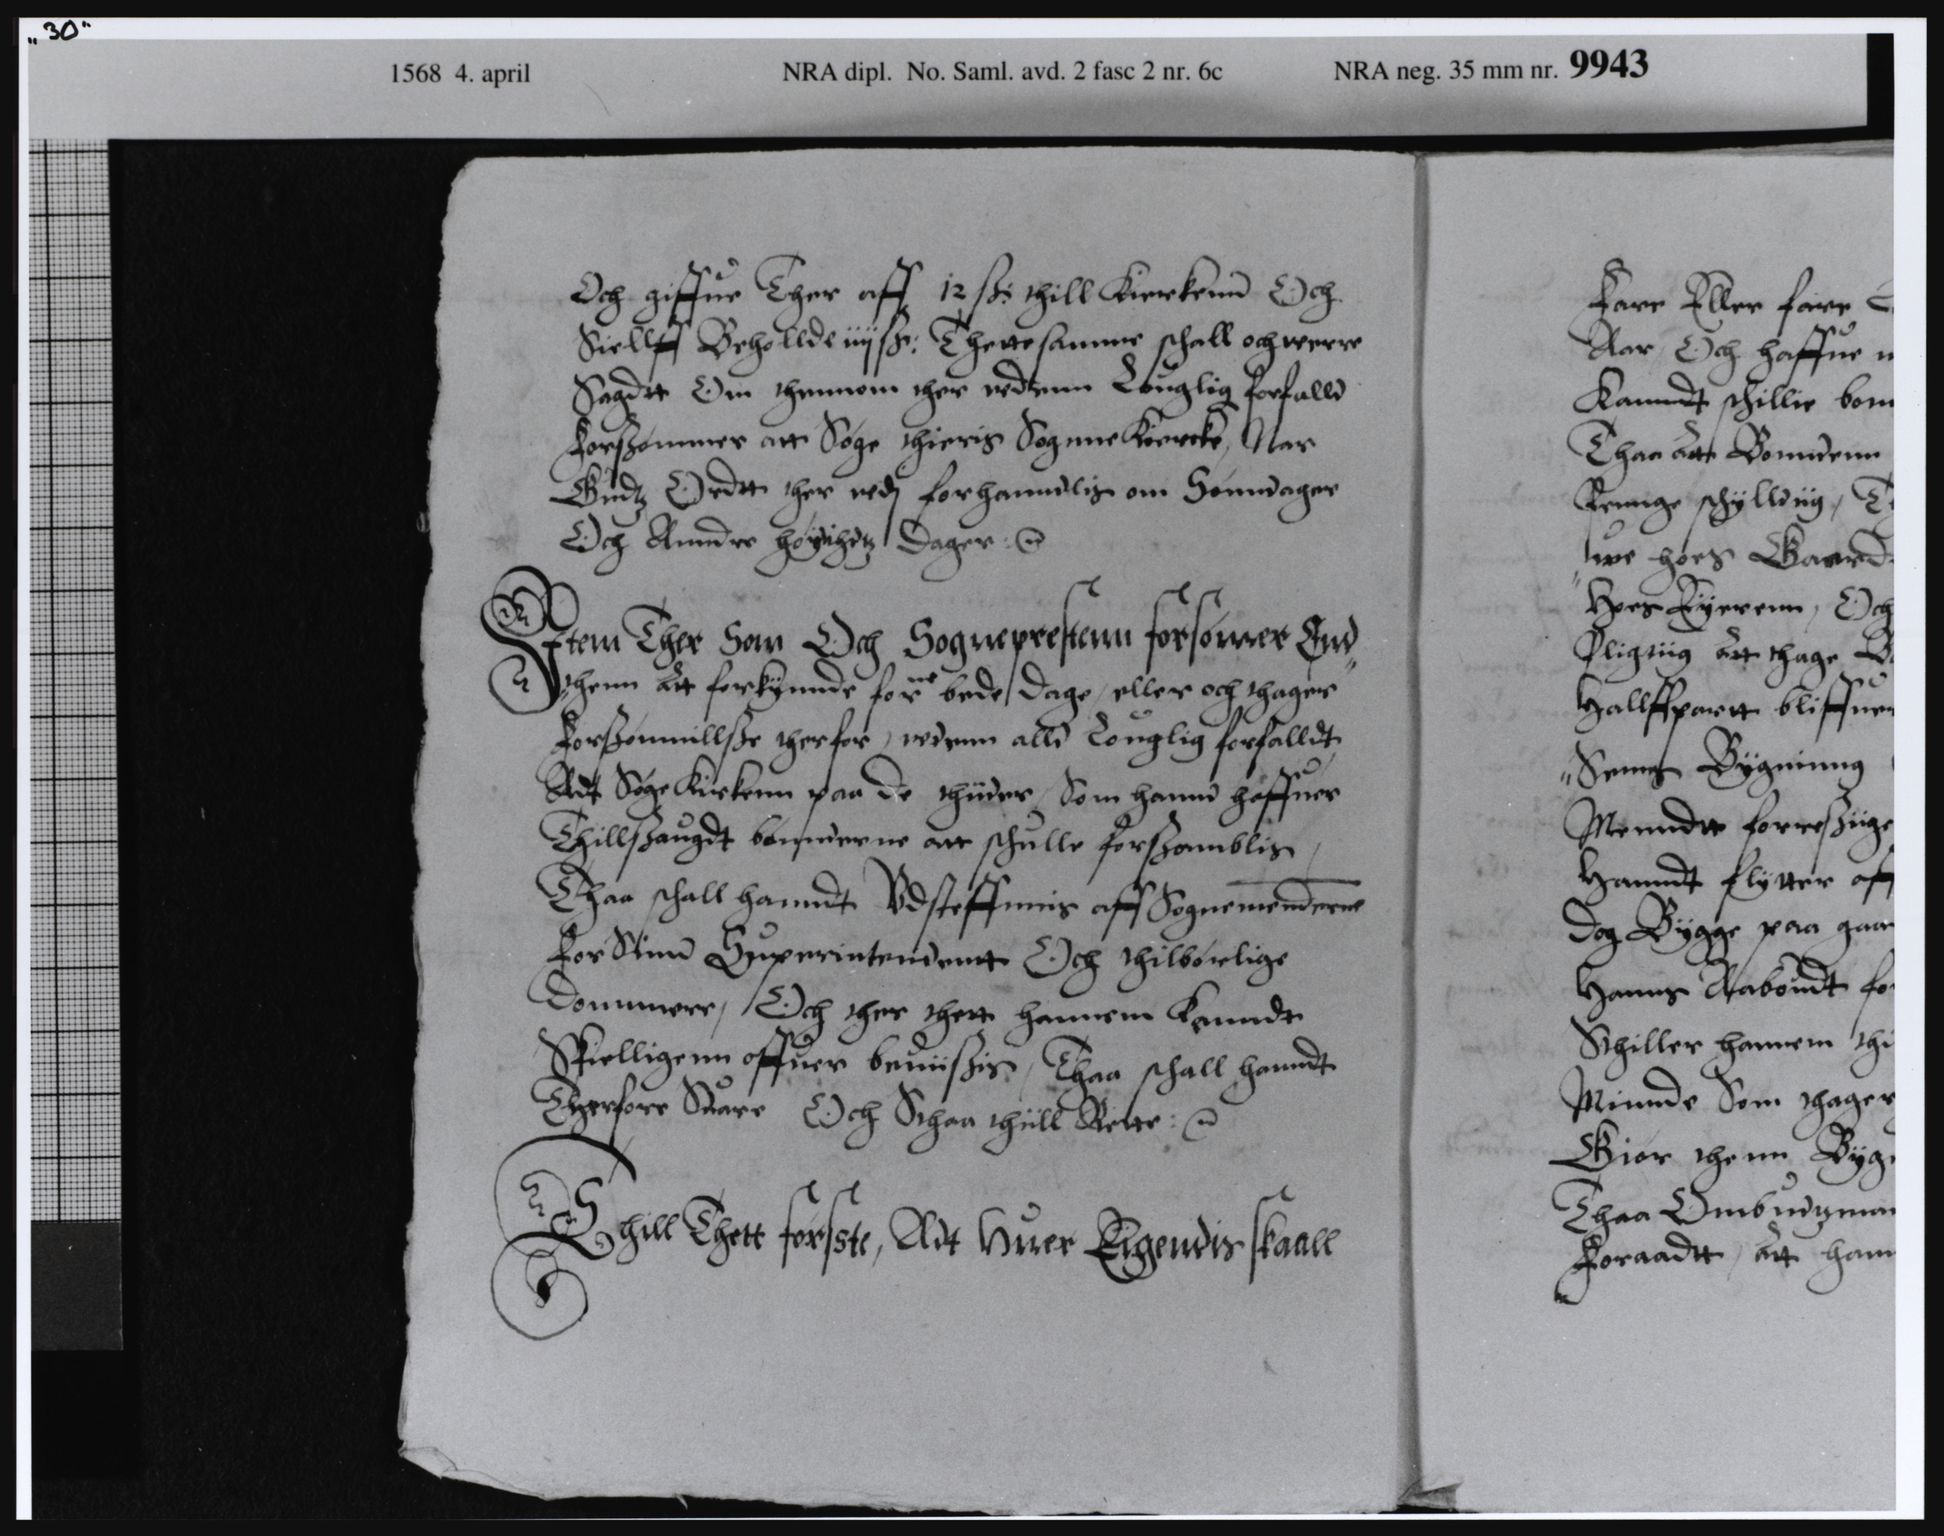 „30“
1568 4. april NRA dipl. No. Saml. avd. 2 fasc 2 nr. 6c NRA neg. 35 mm nr. 9943
Och giffue Ther aff 12 ß: thill Kierkenn Och
Siellff Behollde iiij ß: Thette samme schall och werre
Sagdtt Om thennom ther wdenn Louglig forfalld
Forsßømmer att Søge thieris Sognne Kiercke, Nar
Gudtz Ordtt ther wdj forhanndlis om Sønndager
Och Anndre høytihdtz Dager:
Item Ther Som Och Sogneprestenn forsømer End
thenn Att forkynnde forne bede dage, eller och thager
Forsßømmillsße therfor, wdenn alld Louglig forfalldt
Adt Søge Kirkenn paa de thiider, Som hannd haffuer
Thillsßaugdt bønnderne att schulle forsßamblis,
Thaa schall hanndt Vdsteffnnis aff Sognemenderne
For Sinnd Superintendentt Och thilbørlige
Dommerr, Och ther thett hannem Kanndt
Skielligenn offuer beuiisßis, Thaa schall hanndt
Therfore Suare Och Sthaa thiill Rette:
Thill Thett første, Adt Huer Eigendis skaall
Fare Eller fare
Aar, Och haffue
Kanndt schillie bonn
Thaa Att Bonndenn
Pennge schylldiig,
hoes Gaard
Hoes Eyerenn, Och
Pligtiig Att thage
Hallffpartt bliffuer
Senns Bygninng
Menndtt forresßiige
Hanndt flytter aff
Dog Bygge paa gaar
Hanns Naboudt for
Schiller hannem thi
Minnde Som thager
Giør thenn Byg
Thaa Ombudzman
Foraadtt, Att hann